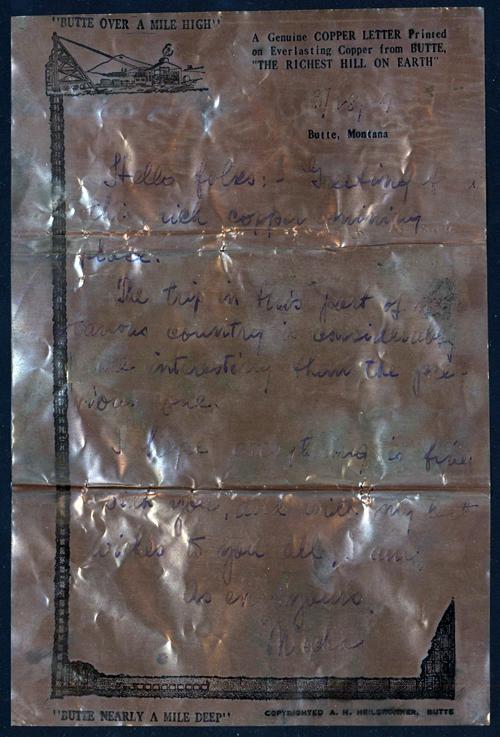 "BUTTE OVER A MILE HIGH"
A Genuine COPPER LETTER Printed
on Everlasting Copper from BUTTE,
"THE RICHEST HILL ON EARTH"
Butte, Montana
Hello folks: - Greeting
this rich copper mining
place.
The trip in this part of
various country is considerably
interesting than the pre-
vious one.
I hope everything is fine
with you, and with my best
wishes to you all, I am,
As ever yours
"BUTTE NEARLY A MILE DEEP"
COPYRIGHTED A. H. HEILBRONNER, BUTTE